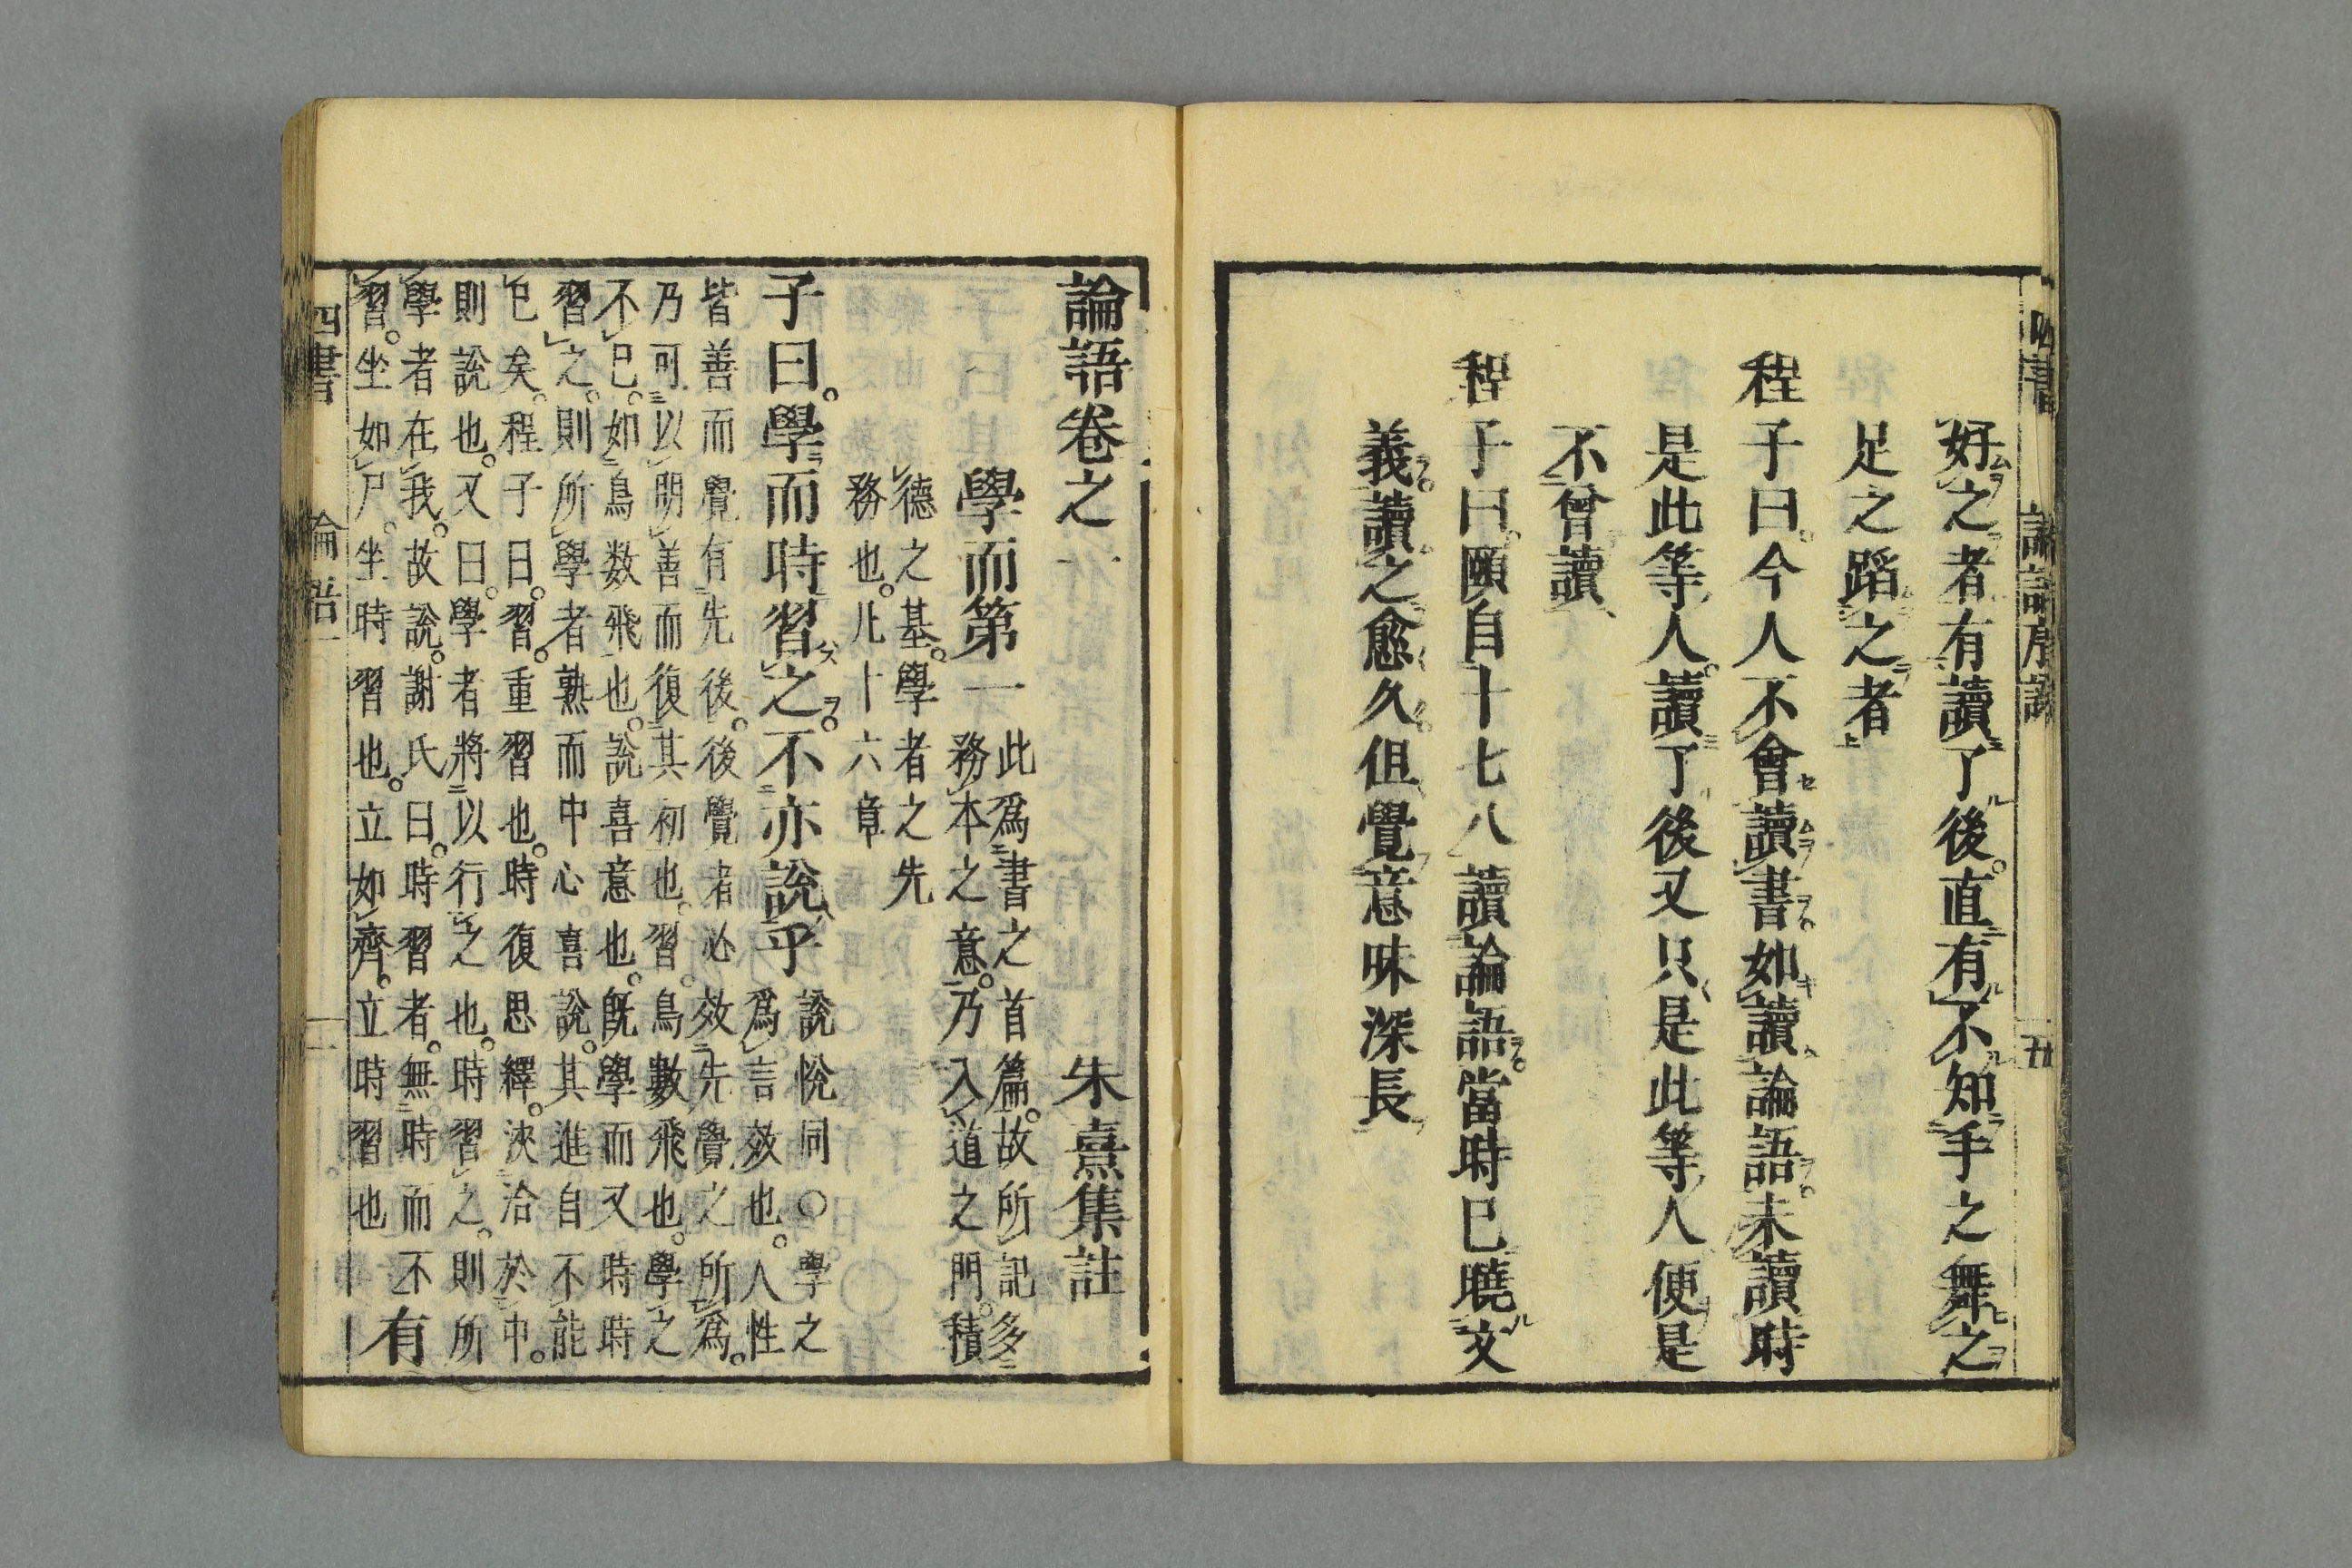 四書 論語序說 五
好之者有讀了後直有不知手之舞之
足之蹈之者
程子曰今人不會讀書如讀論語未讀時
是此等人讀了後又只是此等人便是
不曾讀
程子曰頤自十七八讀論語當時已曉文
義讀之愈久但覺意味深長
論語卷之一 朱熹集註
學而第一
此爲書之首篇故所記多
務本之意乃入道之門積
德之基學者之先
務也凡十六章
子曰學而時習之不亦說乎
說悅同○學之
爲言效也人性
皆善而覺有先後後覺者必效先覺之所爲
乃可以明善而復其初也習鳥數飛也學之
不已如鳥数飛也說喜意也旣學而又時時
習之則所學者熟而中心喜說其進自不能
已矣程子曰習重習也時復思繹浹洽於中
則說也又曰學者將以行之也時習之則所
學者在我故說謝氏曰時習者無時而不有
習坐如尸坐時習也立如齊立時習也
四書 論語一 一